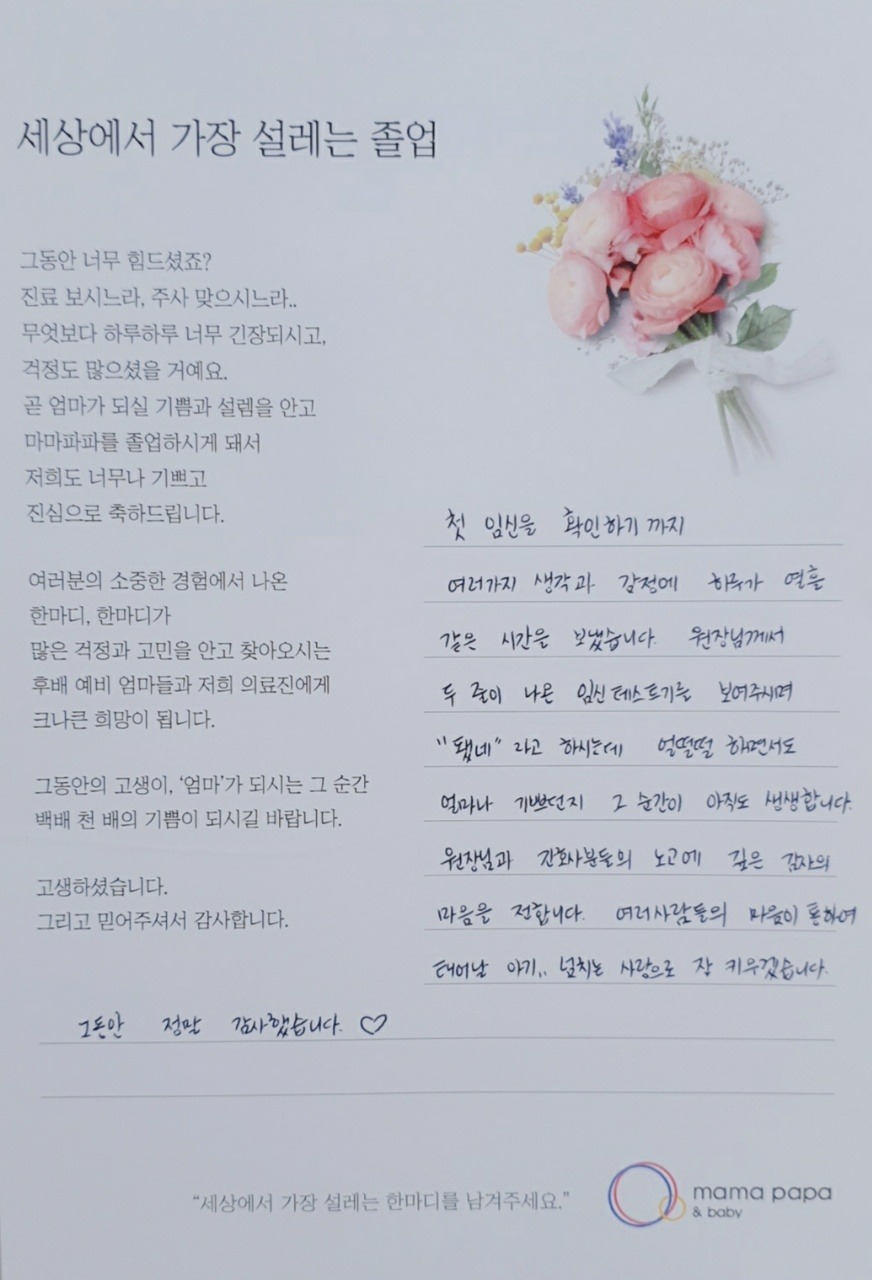 세상에서 가장 설레는 졸업
그동안 너무 힘드셨죠?
진료 보시느라, 주사 맞으시느라..
무엇보다 하루하루 너무 긴장되시고,
걱정도 많으셨을 거예요.
곧 엄마가 되실 기쁨과 설렘을 안고
마마파파를 졸업하시게 돼서
저희도 너무나 기쁘고
진심으로 축하드립니다.
여러분의 소중한 경험에서 나온
한마디, 한마디가
많은 걱정과 고민을 안고 찾아오시는
후배 예비 엄마들과 저희 의료진에게
크나큰 희망이 됩니다.
그동안의 고생이, ‘엄마’가 되시는 그 순간
백배 천 배의 기쁨이 되시길 바랍니다.
고생하셨습니다.
그리고 믿어주셔서 감사합니다.
첫 임신을 확인하기 까지
여러가지 생각과 감정에 하루가 열흘
같은 시간을 보냈습니다. 원장님께서
두 줄이 나온 임신테스트기를 보여주시며
"됐네" 라고 하시는데 얼떨떨 하면서도
얼마나 기쁘던지 그 순간이 아직도 생생합니다.
원장님과 간호사분들의 노고에 깊은 감사의
마음을 전합니다. 여러사람들의 마음이 통하여
태어날 아기.. 넘치는 사랑으로 잘 키우겠습니다.
그동안 정말 감사했습니다. ♡
“세상에서 가장 설레는 한마디를 남겨주세요.”
mama papa
& baby